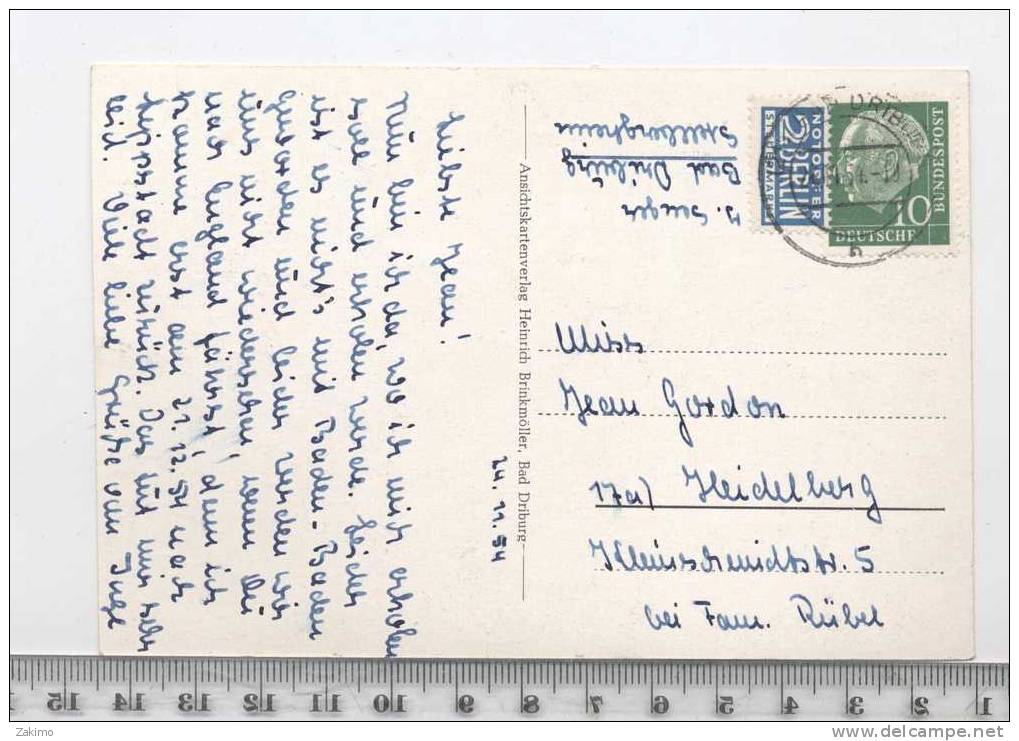 24.11.54
Liebste Jean!
Nun bin ich da, wo ich mich erholen
soll und erholen werde. Leider
ist es nicht's mit Baden-Baden
geworden und leider werden wir
uns nicht wiedersehen! wenn Du
nach England fährst, denn ich
komme erst am 21.12.54 nach
Lippstadt zurück. Das tut mir sehr
leid. Viele liebe Grüße von Inge
Ansichtskartenverlag Heinrich Brinkmöller, Bad Driburg
Bad Driburg
NOTOPFER
2 BERLIN
STEUERMARKE
10
DEUTSCHE
BUNDESPOST
Miss
Jean Gordon
17a) Heidelberg
Kleinschmidtstr. 5
bei Fam. Rübel
15 14 13 12 11 10 9 8 7 6 5 4 3 2 1
Zakimo
delcampe.net